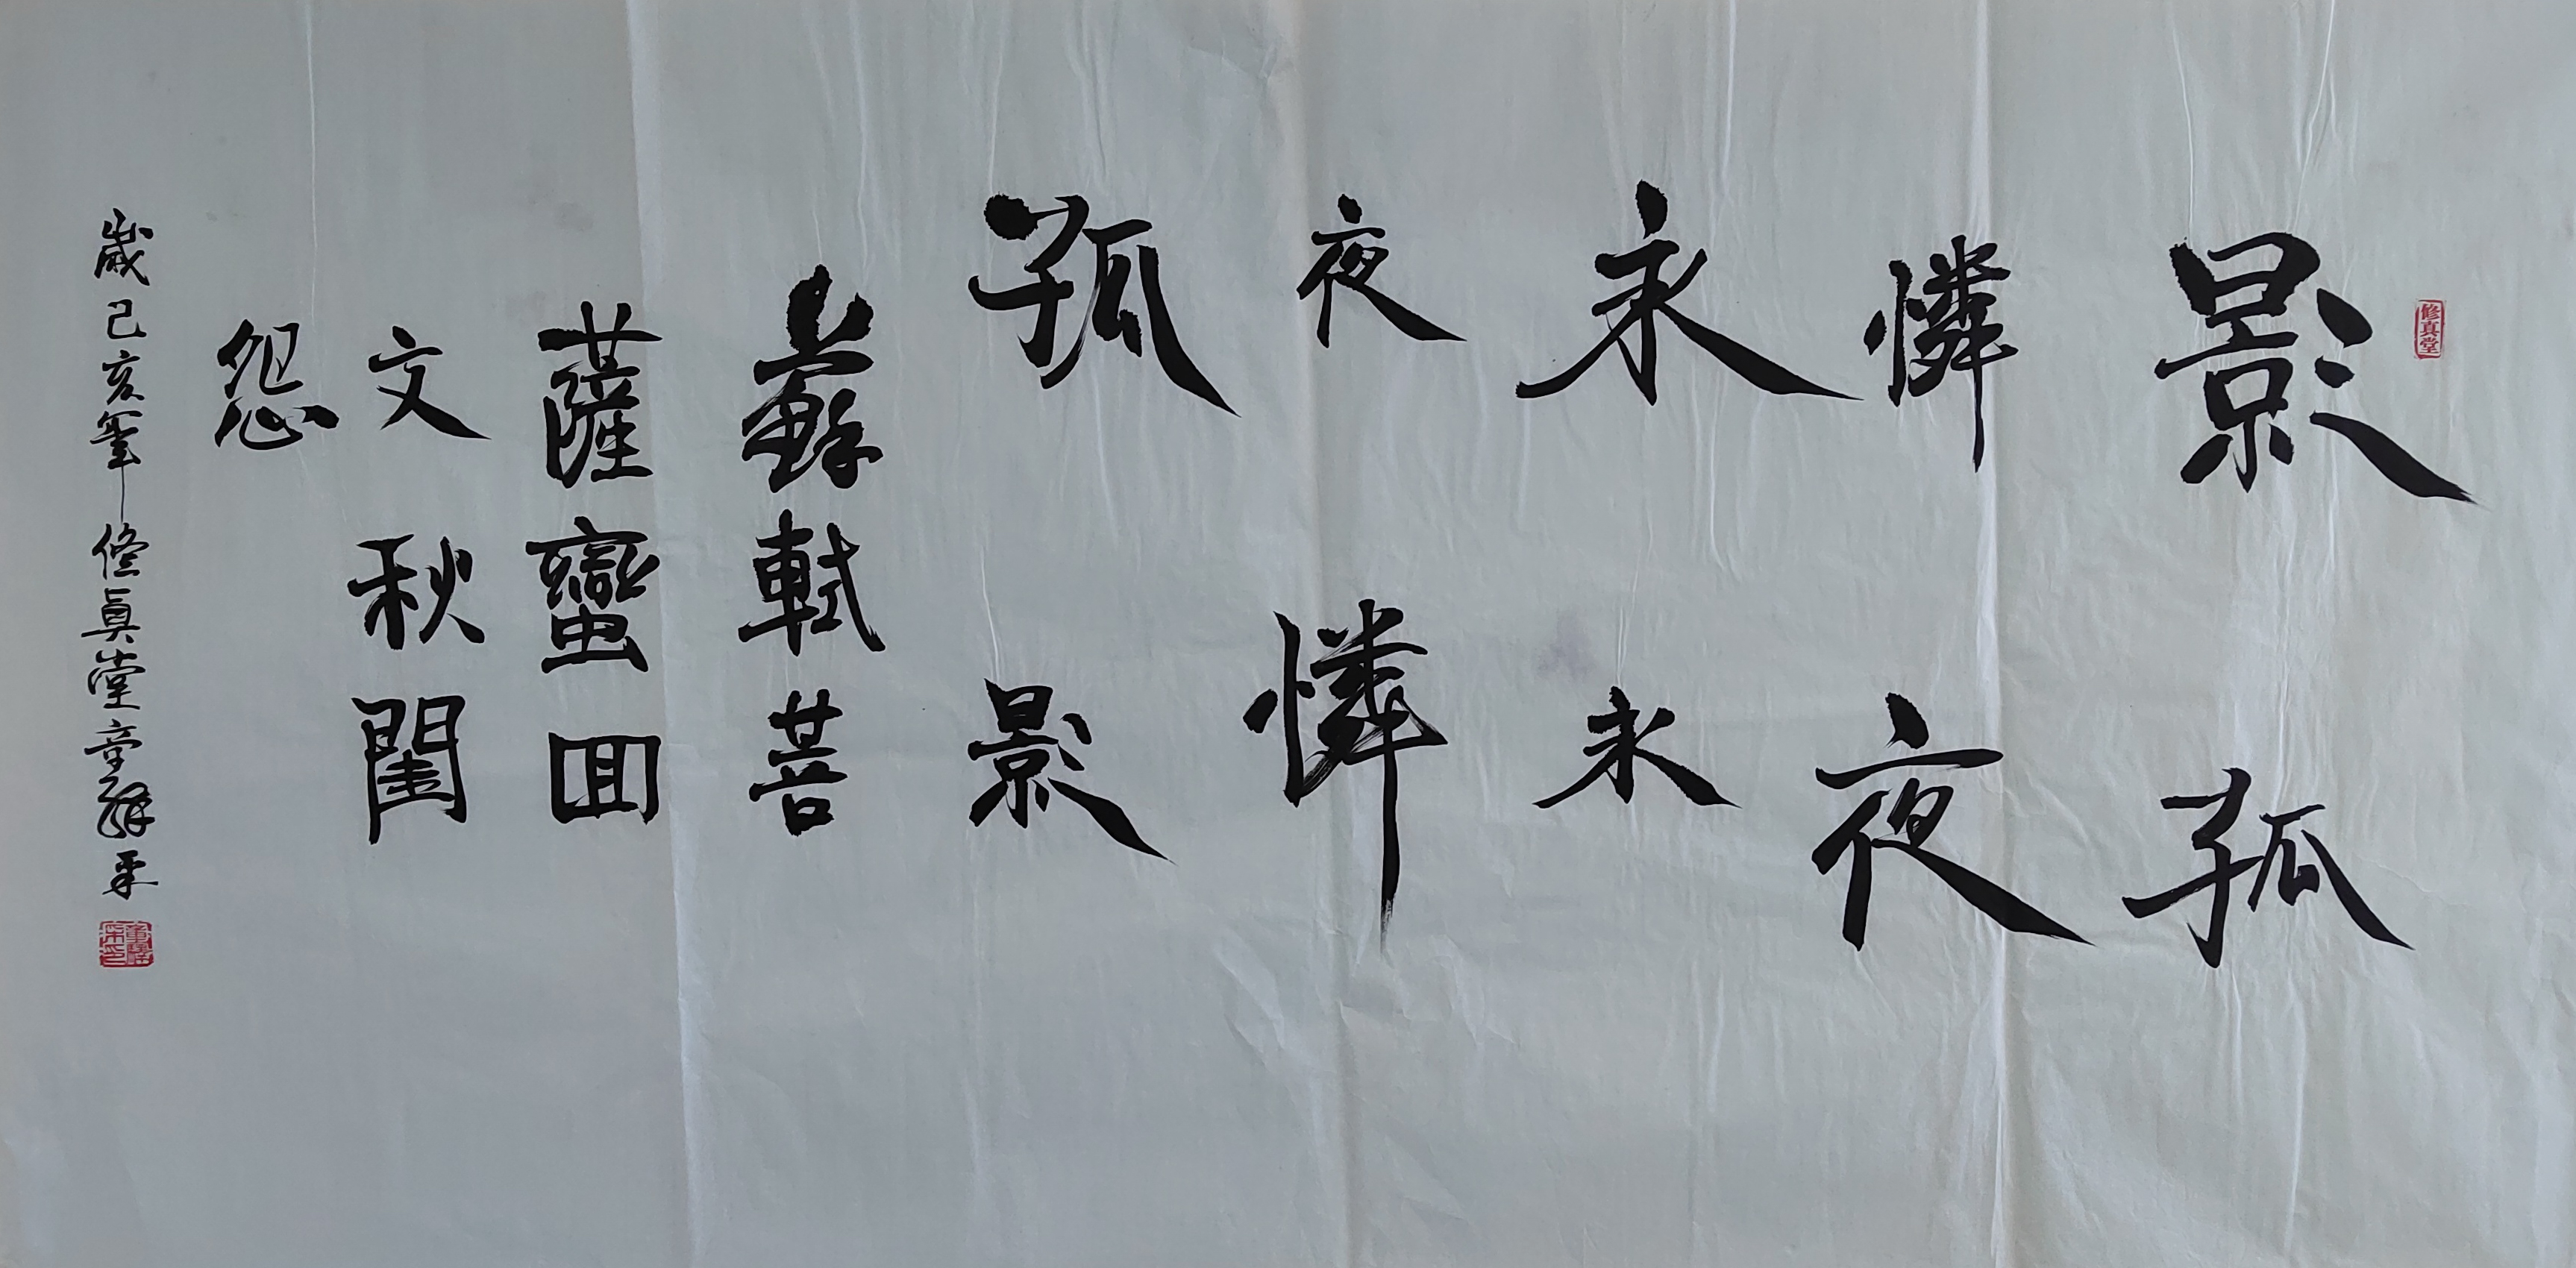 修真堂
影孤
憐夜
永永
夜憐
孤影
蘇軾菩
薩蠻囬
文秋閨
怨
歲己亥年修真堂